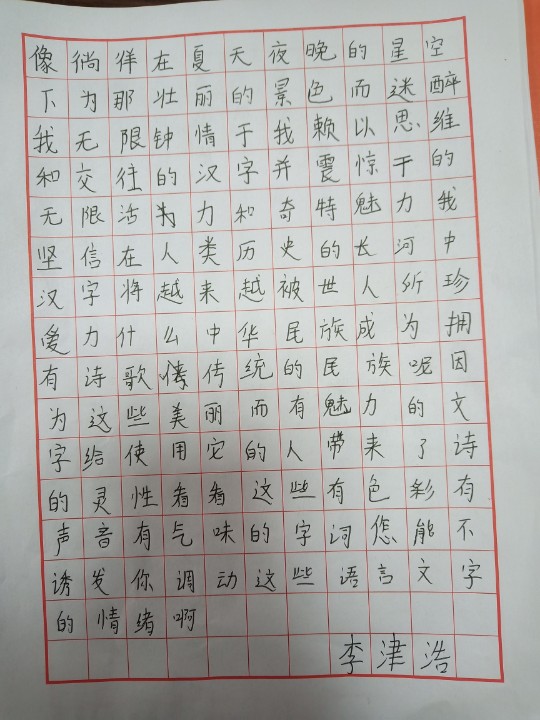 像徜徉在夏天夜晚的星空
下为那壮丽的景色而迷醉
我无限钟情于我赖以思维
和交往的汉字并震惊于的
无限活力和奇特魅力我
坚信在人类历史的长河中
汉字将越来越被世人所珍
爱为什么中华民族成为拥
有诗歌传统的民族呢因
为这些美丽而有魅力的文
字给使用它的人带来了诗
的灵性看着这些有色彩有
声音有气味的字词您能不
诱发你调动这些语言文字
的情绪啊
李津浩